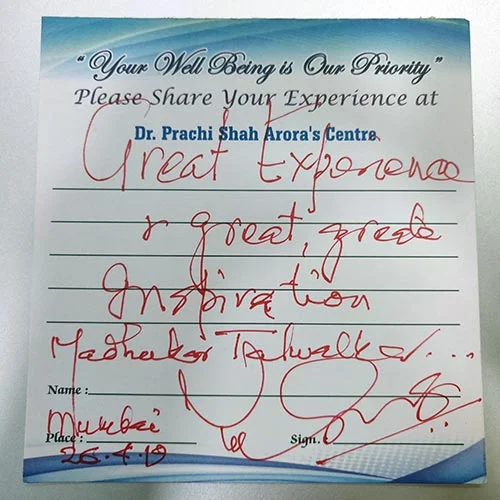 "Your Well Being is Our Priority"
Please Share Your Experience at
Dr. Prachi Shah Arora's Centre
Great Experience
& great, great
Inspiration
Madhukar Talwalkar...
Name :
Mumbai
Place : Sign.
26.4.19